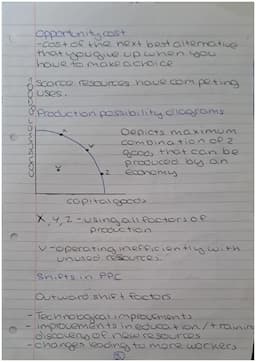 Opportunity cost
-cost of the next best alternative
that you give up when you
have to make a choice
Scarce resources have competing
uses.
Production possibility diagrams
Depicts maximum
combination of 2
goods that can be
produced by an
economy
X
Y
V
Z
capital goods
X, Y, Z - using all factors of
production
V - operating inefficiently with
unused resources.
Shifts in PPC
Outward shift factors
- Technological improvements
- improvements in education/training
discovery of new resources
- changes leading to more workers